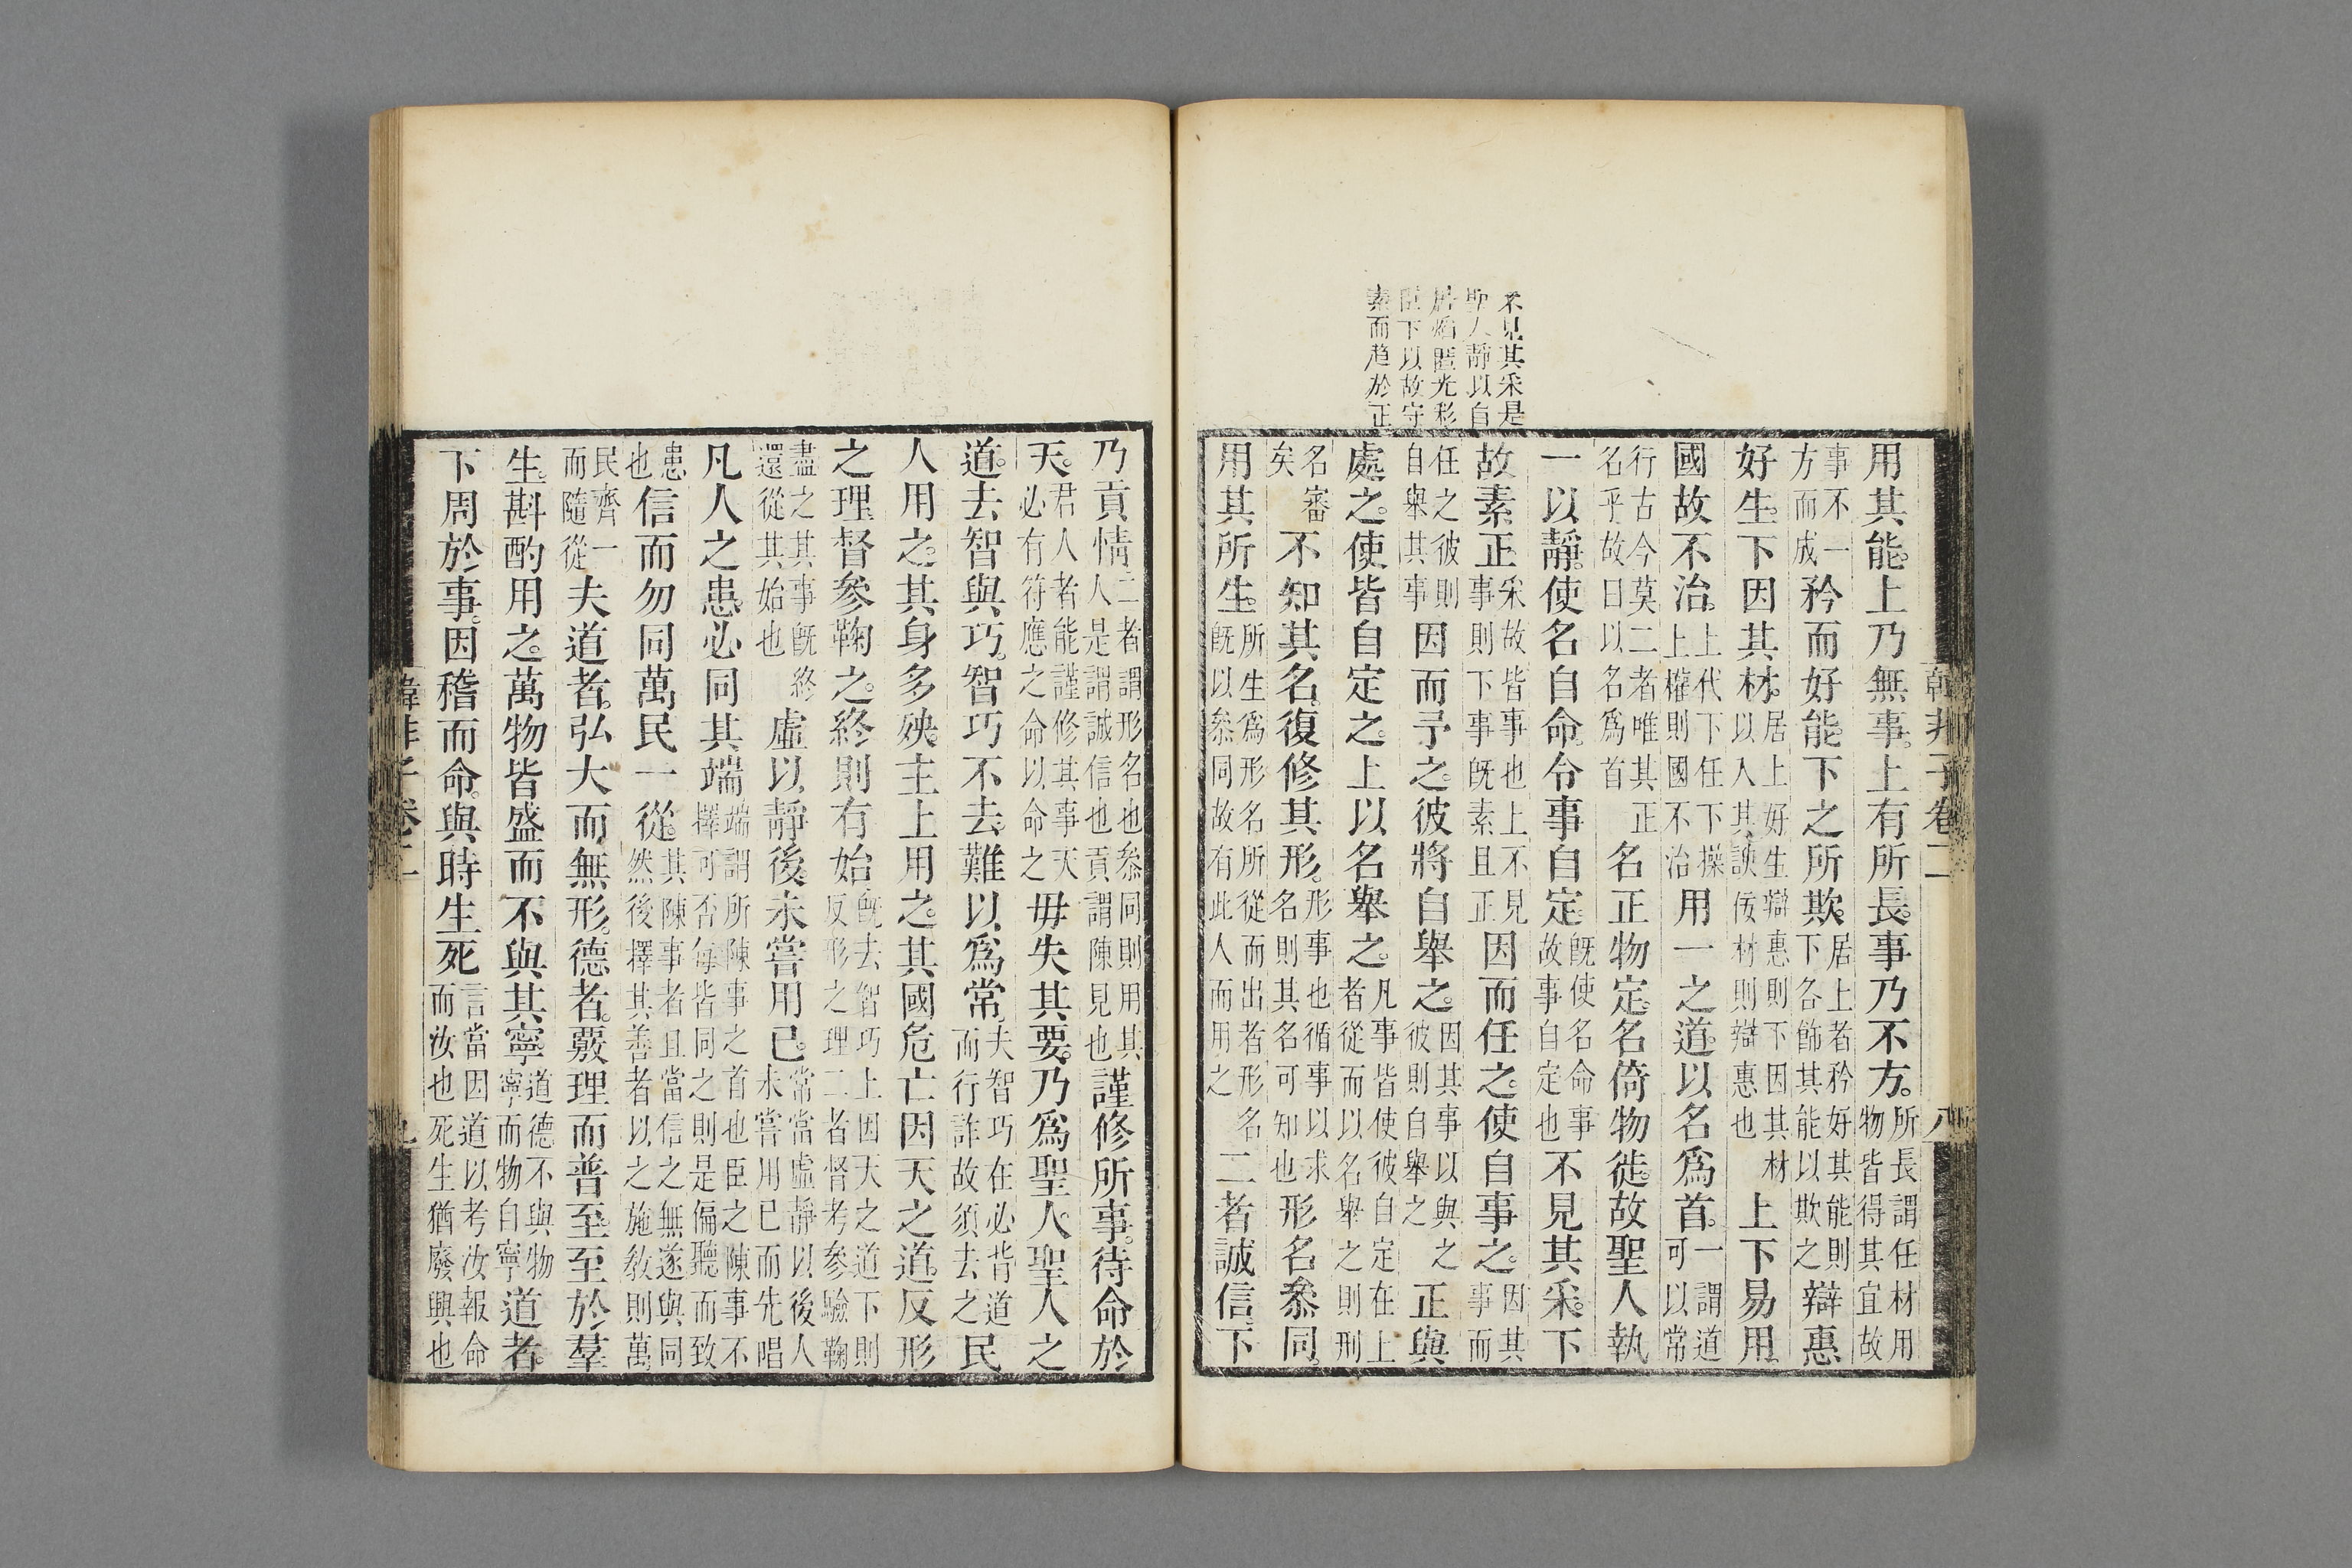 不見其采是
聖人靜以自
居韜匿光彩
臣下以故守
素而趋於正
韓非子卷二 八
用其能。上乃無事。上有所長。事乃不方。所長謂任材用物皆得其宜故
事不一方而成矜而好能。下之所欺。居上者矜好其能則下各飾其能以欺之辯惠
好生。下因其材。居上好生辯惠則下因其材以入其諛佞材則辯惠也上下易用。
國故不治。上代下任下操上權則國不治用一之道。以名爲首。一謂道可以常
行古今莫二者唯其正名乎故曰以名爲首名正物定。名倚物徙。故聖人執
一以靜。使名自命。令事自定。既使名命事故事自定也不見其采。下
故素正采故皆事也上不見事則下事既素且正因而任之。使自事之。因其事而
任之彼則自舉其事因而予之。彼將自舉之。因其事以與之彼則自舉之正與
處之。使皆自定之。上以名舉之。凡事皆使彼自定在上者從而以名舉之則刑
名審矣不知其名。復修其形。形事也循事以求名則其名可知也形名叅同。
用其所生。所生爲形名所從而出者形名既以叅同故有此人而用之二者誠信。下
乃貢情二者謂形名也叅同則用其人是謂誠信也貢謂陳見也謹修所事。待命於
天。君人者能謹修其事天必有符應之命以命之毋失其要。乃爲聖人。聖人之
道。去智與巧。智巧不去。難以爲常。夫智巧在必背道而行詐故須去之民
人用之。其身多殃。主上用之。其國危亡因天之道。反形
之理。督參鞠之。終則有始既去智巧上因天之道下則反形之理二者督考參驗鞠
盡之其事既終還從其始也虛以靜後。未嘗用已。常當虛靜以後人未嘗用已而先唱
凡人之患。必同其端端謂所陳事之首也臣之陳事不擇可否每皆同之則是偏聽而致
患也信而勿同。萬民一從。其陳事者且當信之無遂與同然後擇其善者以之施敎則萬
民齊一而隨從夫道者。弘大而無形。德者。覈理而普至。至於羣
生。斟酌用之。萬物皆盛而不與其寧。道德不與物寧而物自寧道者。
下周於事。因稽而命。與時生死言當因道以考汝報命而汝也死生猶廢興也
韓非子卷二 九